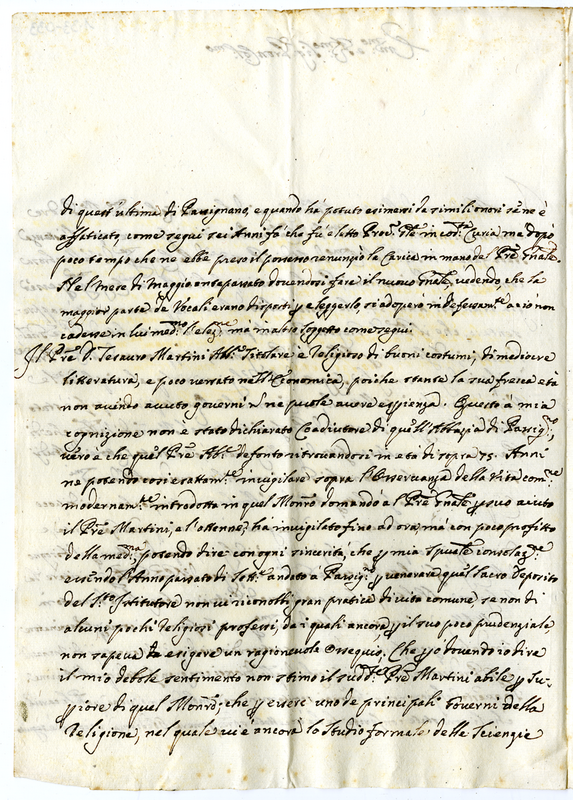 di quest'ultima di Passignano, e quando hà potuto esimersi da simili onori se ne è
affaticato, come seguì sei Anni fà che fù eletto Proc.re G'le in cod.a Curia ma dopo
poco tempo che ne ebbe preso il possesso renunziò la Carica in mano del P're G'nale.
Nel mese di Maggio antepassato dovendosi fare il nuovo G'nale, vedendo, che la
maggior parte de Vocali erano disposti p eleggerlo, si adoperò indefessam.te acciò non
cadesse in lui med.mo l'elez.ne ma in altro soggetto come seguì.
Il P're D. Tesauro Martini Ab.e Titolare e Religioso di buoni costumi, di mediocre
litteratura, e poco versato nell'Economica, poiche stante la sua fresca età
non avendo avuto governi ne puole avere esperienza. Questo à mia
cognizione non è stato dichiarato Coadiutore di quell'Abbazia di Passig.no
vero è che quel P're Ab.e defonto ritrovandosi in età di sopra 75. Anni
ne potendo così esattam.te invigilare sopra l'Osservanza della vita com.ne
modernam.te introdotta in quel Mon'ro domandò al P're G'nale p suo aiuto
il P're Martini, e l'ottenne, ha invigilato fino ad ora, mà con poco profitto
della med.ma, potendo dire con ogni sincerità, che p mia sp'uale consolaz.ne
essendo l'Anno passato di Sett.e andato à Passig.no p venerare quel Sacro Deposito
del S.to Istitutore non vi riconobbi gran pratica di vita comune, se non di
alcuni pochi Religiosi professi, da i quali ancora p il suo poco prudenziale,
non sapeva esigere un ragionevole Ossequio. Che p dovendo io dire
il mio debole sentimento non stimo il sud.o P're Martini abile p Su-
p'iore di quel Mon'ro, che p essere uno de principali Governi della
Religione, nel quale vi è ancora lo Studio formale delle Scienzie